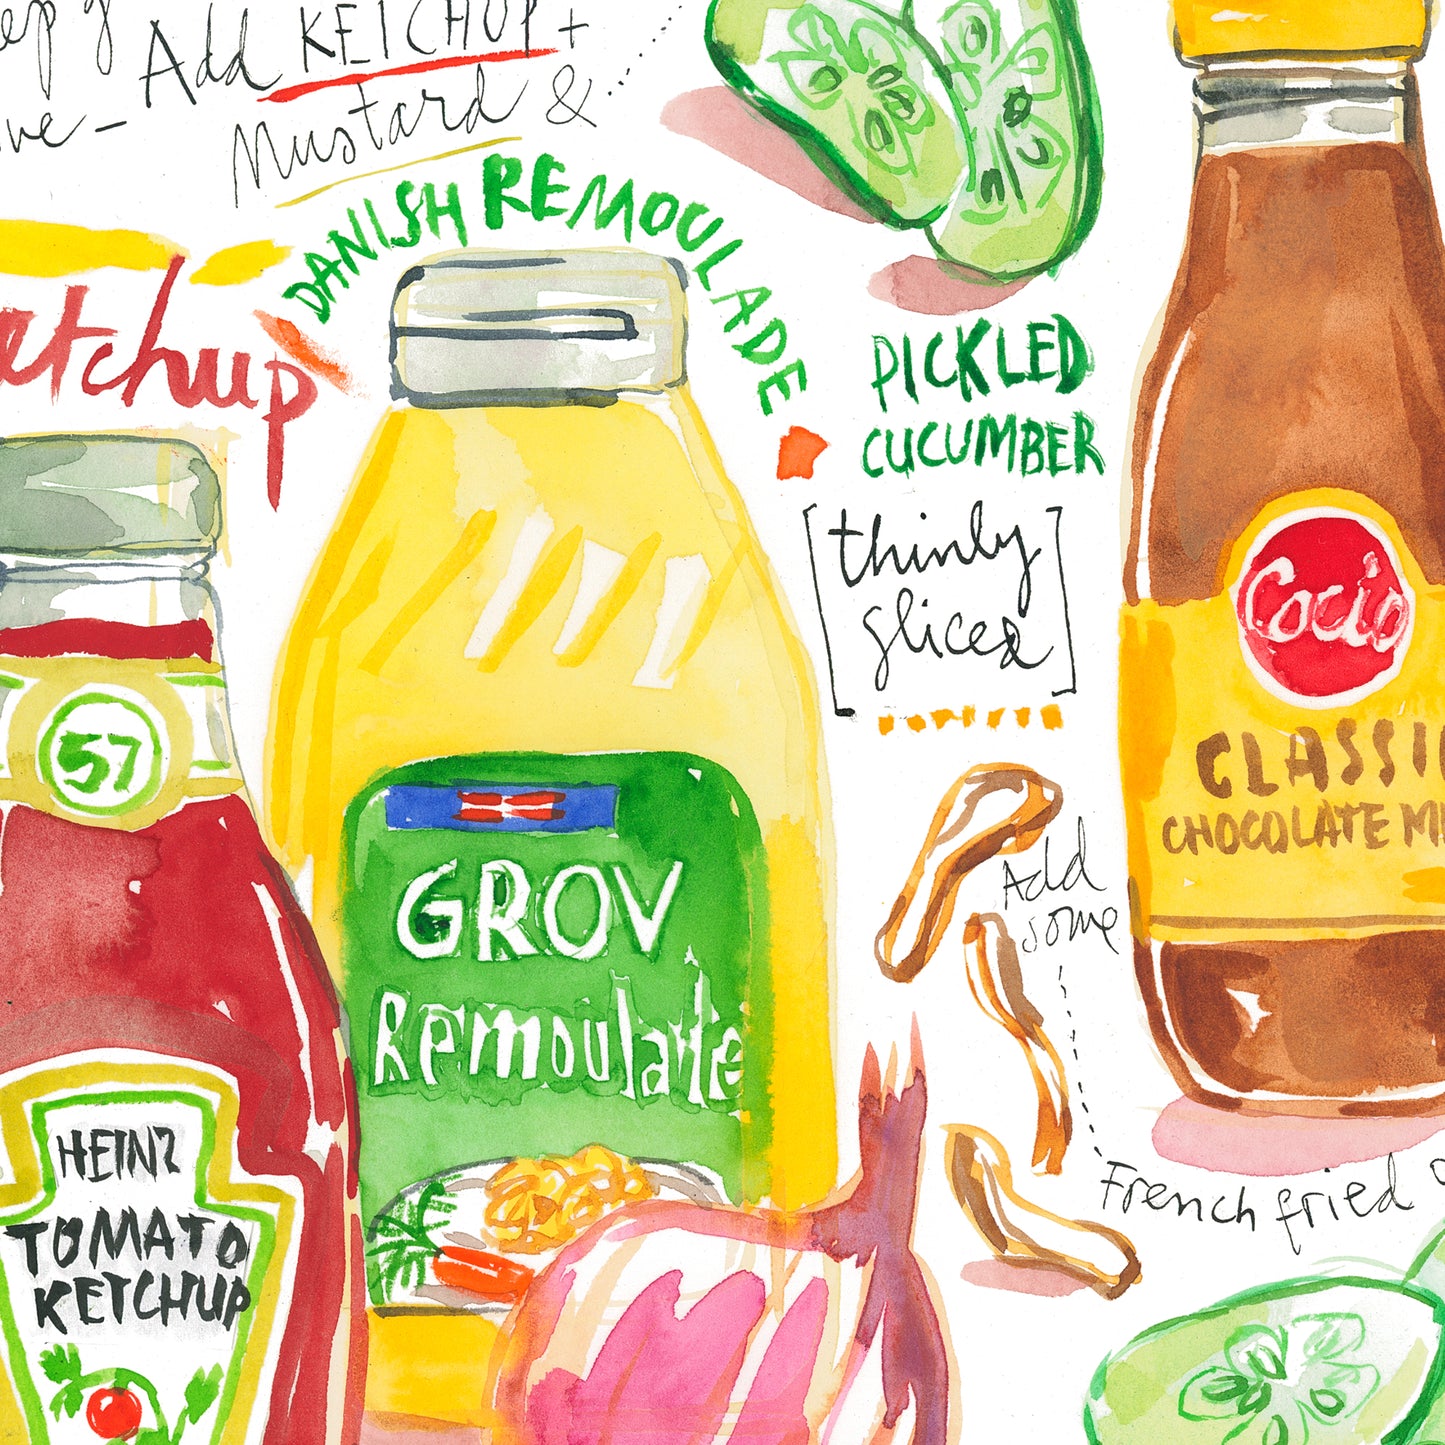 Add KETCHUP +
Mustard & ...
DANISH REMOULADE
Ketchup
PICKLED
CUCUMBER
[thinly
slices]
57
HEINZ
TOMATO
KETCHUP
GROV
Remoulade
Cocio
CLASSIC
CHOCOLATE MI
Add
some
French fried